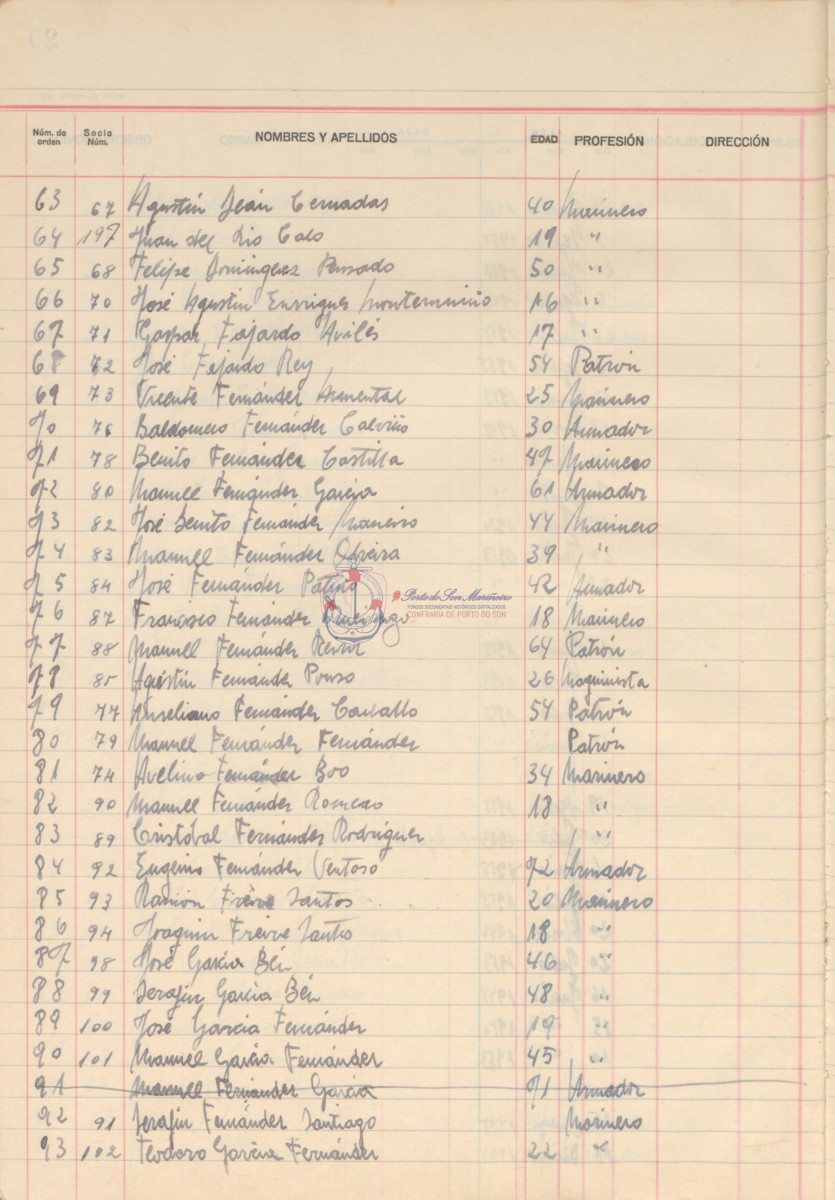 Núm. de orden Socio Núm. NOMBRES Y APELLIDOS EDAD PROFESIÓN DIRECCIÓN
63 67 Agustin Deán Cernadas 40 Marinero
64 197 Juan del Rio Calo 19 "
65 68 Felipe Dominguez Pensado 50 "
66 70 José Agustin Enrriquez 16 "
67 71 Gaspar Fajardo Avilés 17 "
68 72 José Fajardo Rey 54 Patrón
69 73 Vicente Fernández Armental 25 Marinero
70 76 Baldomero Fernández Calviño 30 Armador
71 78 Benito Fernández Castilla 47 Marinero
72 80 Manuel Fernández García 61 Armador
73 82 José Benito Fernández Maneiro 44 Marinero
74 83 Manuel Fernández 39 "
75 84 José Fernández Patiño 42 Armador
76 87 Francisco Fernández 18 Marinero
77 88 Manuel Fernández 64 Patrón
78 85 Agustín Fernández Pouso 26 Maquinista
79 77 Aureliano Fernández Carballo 54 Patrón
80 79 Manuel Fernández Fernández Patrón
81 74 Avelino Fernández Boo 34 Marinero
82 90 Manuel Fernández Romero 18 "
83 89 Cristóbal Fernández Rodríguez "
84 92 Eugenio Fernández Ventoso 72 Armador
85 93 Ramón Freire Santos 20 Marinero
86 94 Joaquin Freire Santos 18 "
87 98 José García 46 "
88 99 Serafín García 48 "
89 100 José García Fernández 19 "
90 101 Manuel García Fernández 45 "
91 Manuel Fernández García 71 Armador
92 91 Serafín Fernández Santiago Marinero
93 102 Teodoro García Fernández 22 "
Porto do Son Mariñeiro
FONDOS DOCUMENTAIS HISTÓRICOS DIXITALIZADOS
CONFRARÍA DE PORTO DO SON